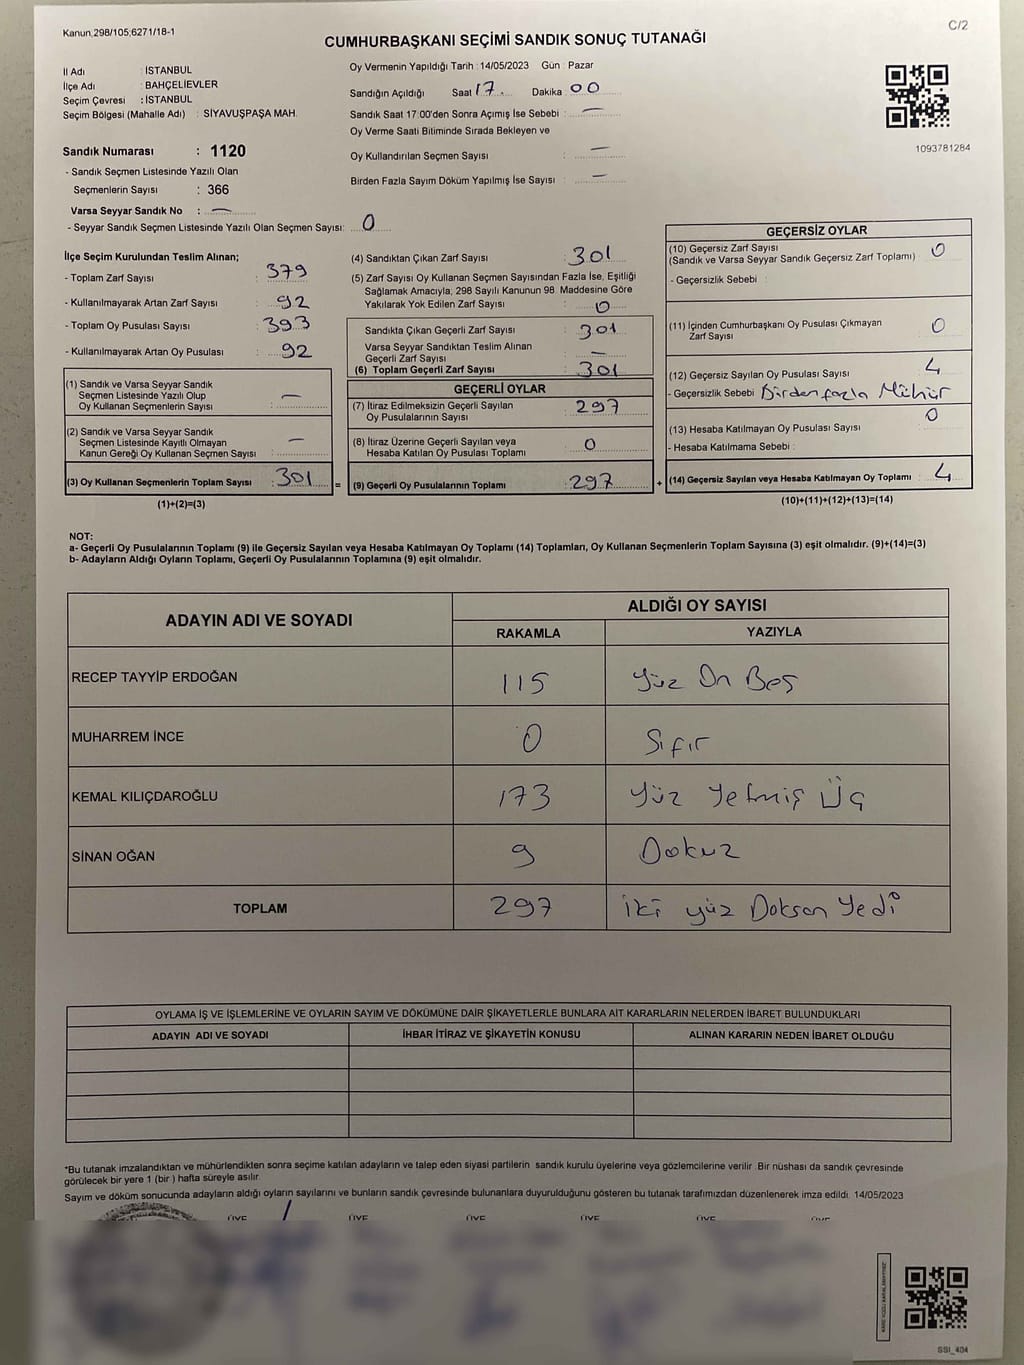 Kanun;298/105;6271/18-1
C/2
CUMHURBAŞKANI SEÇİMİ SANDIK SONUÇ TUTANAĞI
İl Adı : İSTANBUL
İlçe Adı : BAHÇELİEVLER
Seçim Çevresi : İSTANBUL
Seçim Bölgesi (Mahalle Adı) : SİYAVUŞPAŞA MAH.
Sandık Numarası : 1120
- Sandık Seçmen Listesinde Yazılı Olan
Seçmenlerin Sayısı : 366
Varsa Seyyar Sandık No : —
- Seyyar Sandık Seçmen Listesinde Yazılı Olan Seçmen Sayısı: 0
Oy Vermenin Yapıldığı Tarih : 14/05/2023 Gün : Pazar
Sandığın Açıldığı Saat 17 Dakika 00
Sandık Saat 17:00'den Sonra Açımış İse Sebebi : —
Oy Verme Saati Bitiminde Sırada Bekleyen ve
Oy Kullandırılan Seçmen Sayısı : —
Birden Fazla Sayım Döküm Yapılmış İse Sayısı : —
1093781284
İlçe Seçim Kurulundan Teslim Alınan;
- Toplam Zarf Sayısı : 379
- Kullanılmayarak Artan Zarf Sayısı : 92
- Toplam Oy Pusulası Sayısı : 393
- Kullanılmayarak Artan Oy Pusulası : 92
(1) Sandık ve Varsa Seyyar Sandık
Seçmen Listesinde Yazılı Olup
Oy Kullanan Seçmenlerin Sayısı : —
(2) Sandık ve Varsa Seyyar Sandık
Seçmen Listesinde Kayıtlı Olmayan
Kanun Gereği Oy Kullanan Seçmen Sayısı : —
(3) Oy Kullanan Seçmenlerin Toplam Sayısı : 301 =
(1)+(2)=(3)
(4) Sandıktan Çıkan Zarf Sayısı : 301
(5) Zarf Sayısı Oy Kullanan Seçmen Sayısından Fazla İse, Eşitliği
Sağlamak Amacıyla, 298 Sayılı Kanunun 98. Maddesine Göre
Yakılarak Yok Edilen Zarf Sayısı : 0
Sandıkta Çıkan Geçerli Zarf Sayısı : 301
Varsa Seyyar Sandıktan Teslim Alınan
Geçerli Zarf Sayısı : —
(6) Toplam Geçerli Zarf Sayısı : 301
GEÇERLİ OYLAR
(7) İtiraz Edilmeksizin Geçerli Sayılan
Oy Pusulalarının Sayısı : 297
(8) İtiraz Üzerine Geçerli Sayılan veya
Hesaba Katılan Oy Pusulası Toplamı : 0
(9) Geçerli Oy Pusulalarının Toplamı : 297 +
GEÇERSİZ OYLAR
(10) Geçersiz Zarf Sayısı
(Sandık ve Varsa Seyyar Sandık Geçersiz Zarf Toplamı) : 0
- Geçersizlik Sebebi :
(11) İçinden Cumhurbaşkanı Oy Pusulası Çıkmayan
Zarf Sayısı : 0
(12) Geçersiz Sayılan Oy Pusulası Sayısı : 4
- Geçersizlik Sebebi : Birden fazla Mühür
(13) Hesaba Katılmayan Oy Pusulası Sayısı : 0
- Hesaba Katılmama Sebebi :
(14) Geçersiz Sayılan veya Hesaba Katılmayan Oy Toplamı : 4
(10)+(11)+(12)+(13)=(14)
NOT:
a- Geçerli Oy Pusulalarının Toplamı (9) ile Geçersiz Sayılan veya Hesaba Katılmayan Oy Toplamı (14) Toplamları, Oy Kullanan Seçmenlerin Toplam Sayısına (3) eşit olmalıdır. (9)+(14)=(3)
b- Adayların Aldığı Oyların Toplamı, Geçerli Oy Pusulalarının Toplamına (9) eşit olmalıdır.
ADAYIN ADI VE SOYADI ALDIĞI OY SAYISI
RAKAMLA YAZIYLA
RECEP TAYYİP ERDOĞAN 115 Yüz On Beş
MUHARREM İNCE 0 Sıfır
KEMAL KILIÇDAROĞLU 173 Yüz Yetmiş Üç
SİNAN OĞAN 9 Dokuz
TOPLAM 297 İki yüz Doksan Yedi
OYLAMA İŞ VE İŞLEMLERİNE VE OYLARIN SAYIM VE DÖKÜMÜNE DAİR ŞİKAYETLERLE BUNLARA AİT KARARLARIN NELERDEN İBARET BULUNDUKLARI
ADAYIN ADI VE SOYADI İHBAR İTİRAZ VE ŞİKAYETİN KONUSU ALINAN KARARIN NEDEN İBARET OLDUĞU
*Bu tutanak imzalandıktan ve mühürlendikten sonra seçime katılan adayların ve talep eden siyasi partilerin sandık kurulu üyelerine veya gözlemcilerine verilir. Bir nüshası da sandık çevresinde
görülecek bir yere 1 (bir ) hafta süreyle asılır.
Sayım ve döküm sonucunda adayların aldığı oyların sayılarını ve bunların sandık çevresinde bulunanlara duyurulduğunu gösteren bu tutanak tarafımızdan düzenlenerek imza edildi. 14/05/2023
ÜYE ÜYE ÜYE ÜYE ÜYE ÜYE
SSI_404